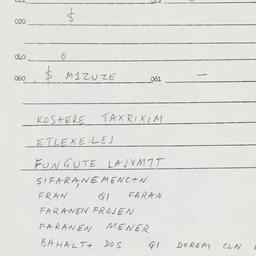 020 $
040 0
060 $ MIZUZE 061 —
KOSTERE TAXRIXIM
ETLEXEILEJ
FUNGUTE LAJVMTT
SIFARANEMENCTN
FRAN QI FARAN
FARANEN FROJEN
FARANEN MENER
BAHALT+ DOS QI DOREM CLN